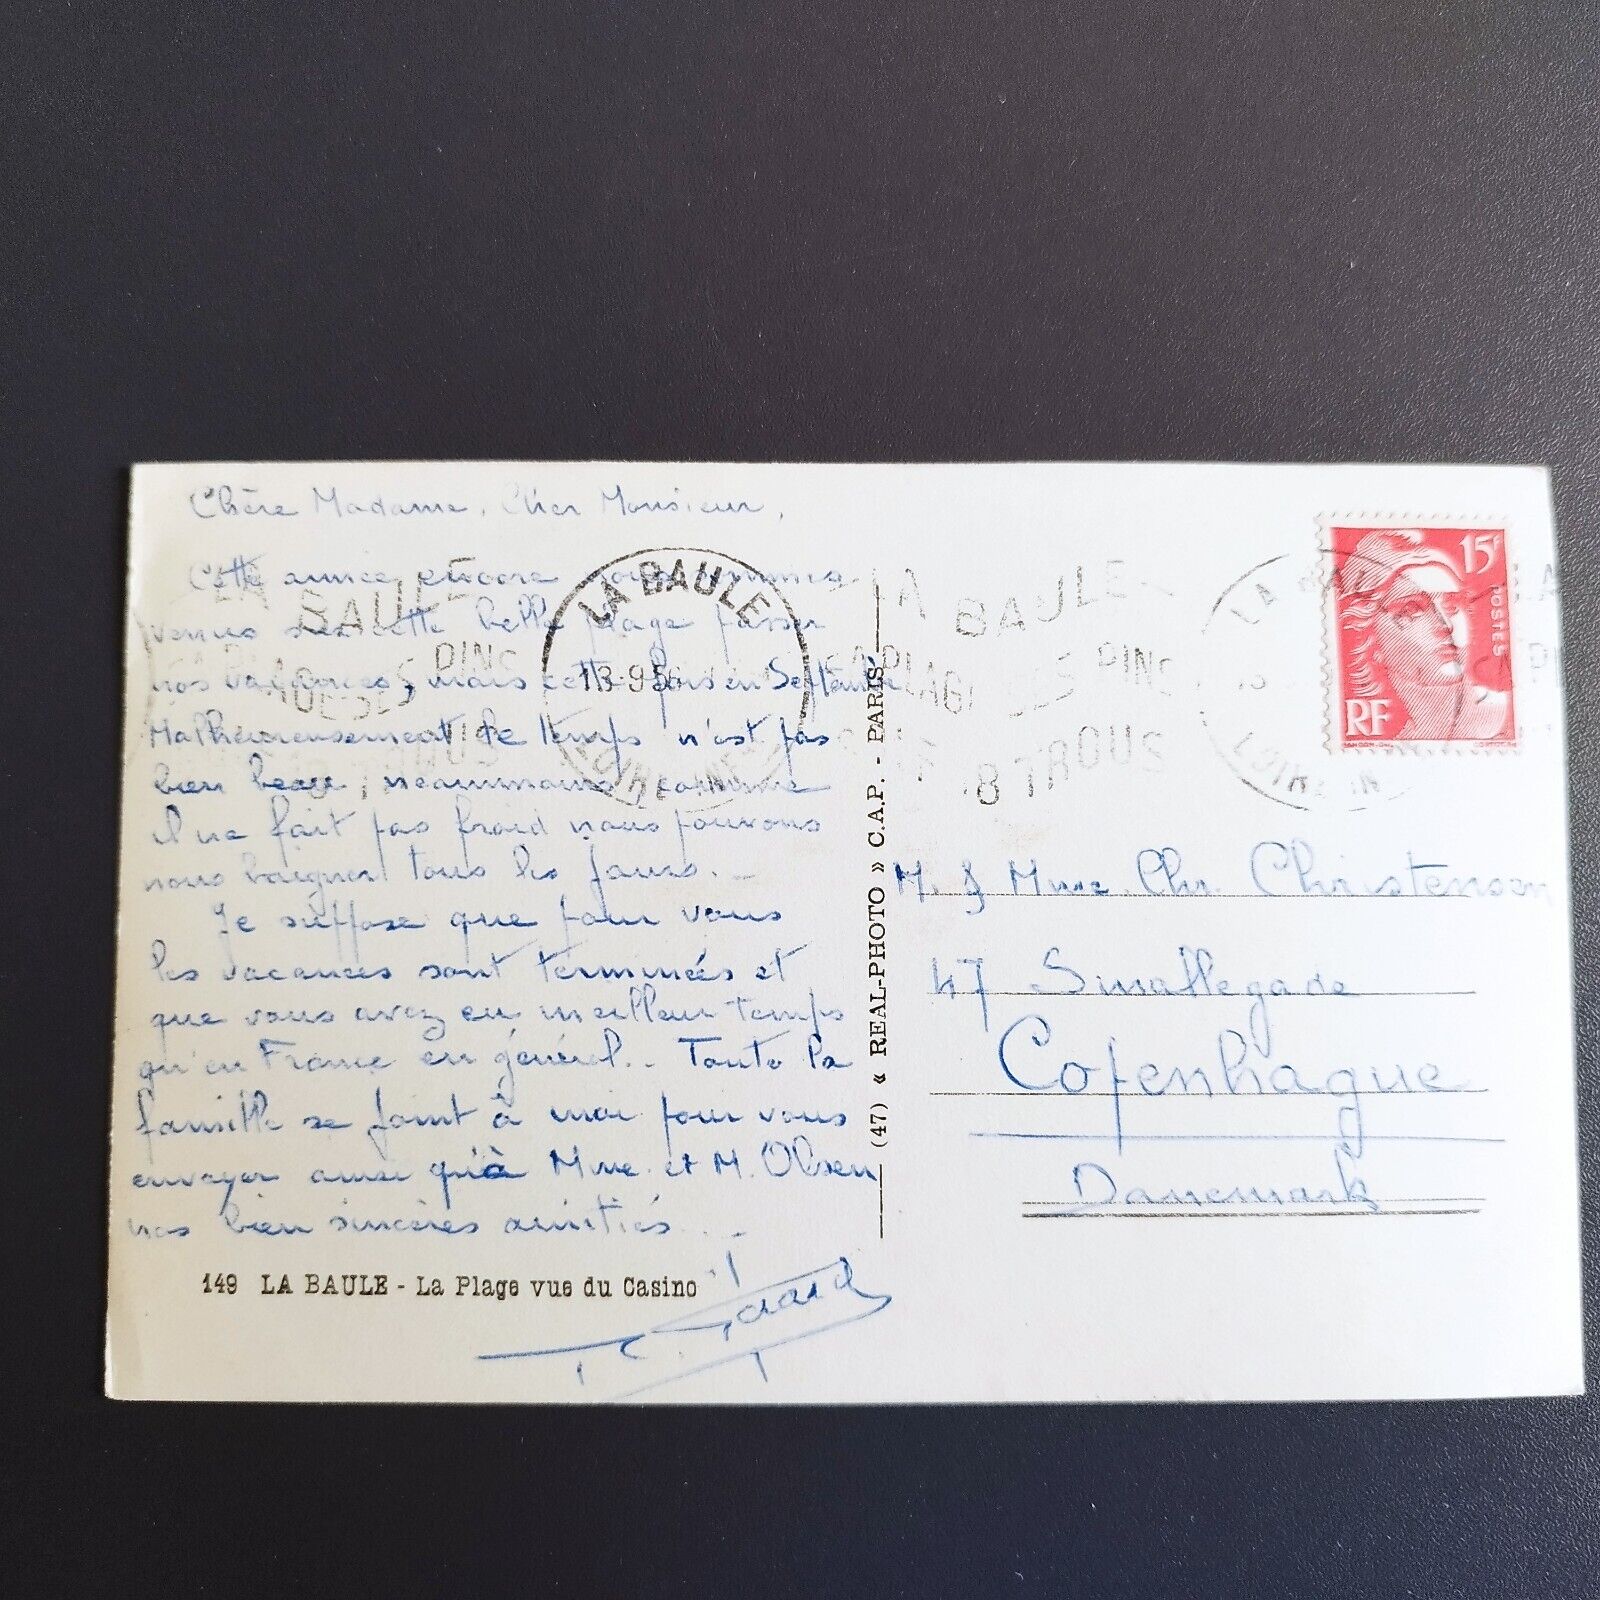 Chère Madame, Cher Monsieur,
Cette année encore nous sommes
venus sur cette belle plage passer
nos vacances, mais cette fois en Septembre
Malheureusement le temps n'est pas
bien beau néanmoins, comme
il ne fait pas froid nous pouvons
nous baigner tous les jours. -
Je suppose que pour vous
les vacances sont terminées et
que vous avez eu meilleur temps
qu'en France en général. - Toute la
famille se joint à moi pour vous
envoyer ainsi qu'à Mme et M. Olsen
nos bien sincères amitiés. -
149 LA BAULE - La Plage vue du Casino
(47) « REAL-PHOTO » C.A.P. - PARIS
LA BAULE
13-9-5
LOIRE INF
LA
BAULE
SA PLAGE SES PINS
SON GOLF
18 TROUS
LA BAULE
LOIRE IN
15F
POSTES
RF
GANDON
CORTOT
M. & Mme. Chr. Christensen
47 Smallegade
Copenhague
Danemark